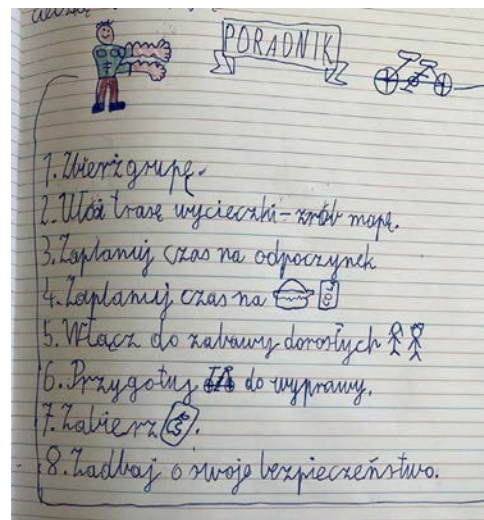 PORADNIK
1. Zbierz grupę.
2. Ułóż trasę wycieczki - zrób mapę.
3. Zaplanuj czas na odpoczynek
4. Zaplanuj czas na
5. Włącz do zabawy dorosłych
6. Przygotuj do wyprawy.
7. Zabierz .
8. Zadbaj o swoje bezpieczeństwo.